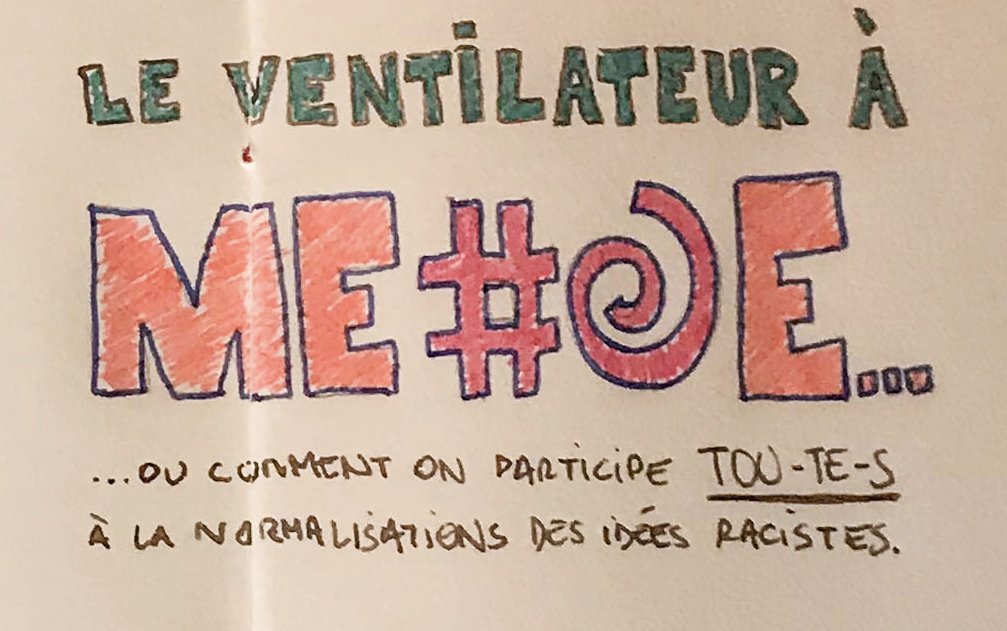 LE VENTILATEUR À
ME#@E...
...OU COMMENT ON PARTICIPE TOU-TE-S
À LA NORMALISATIONS DES IDÉES RACISTES.